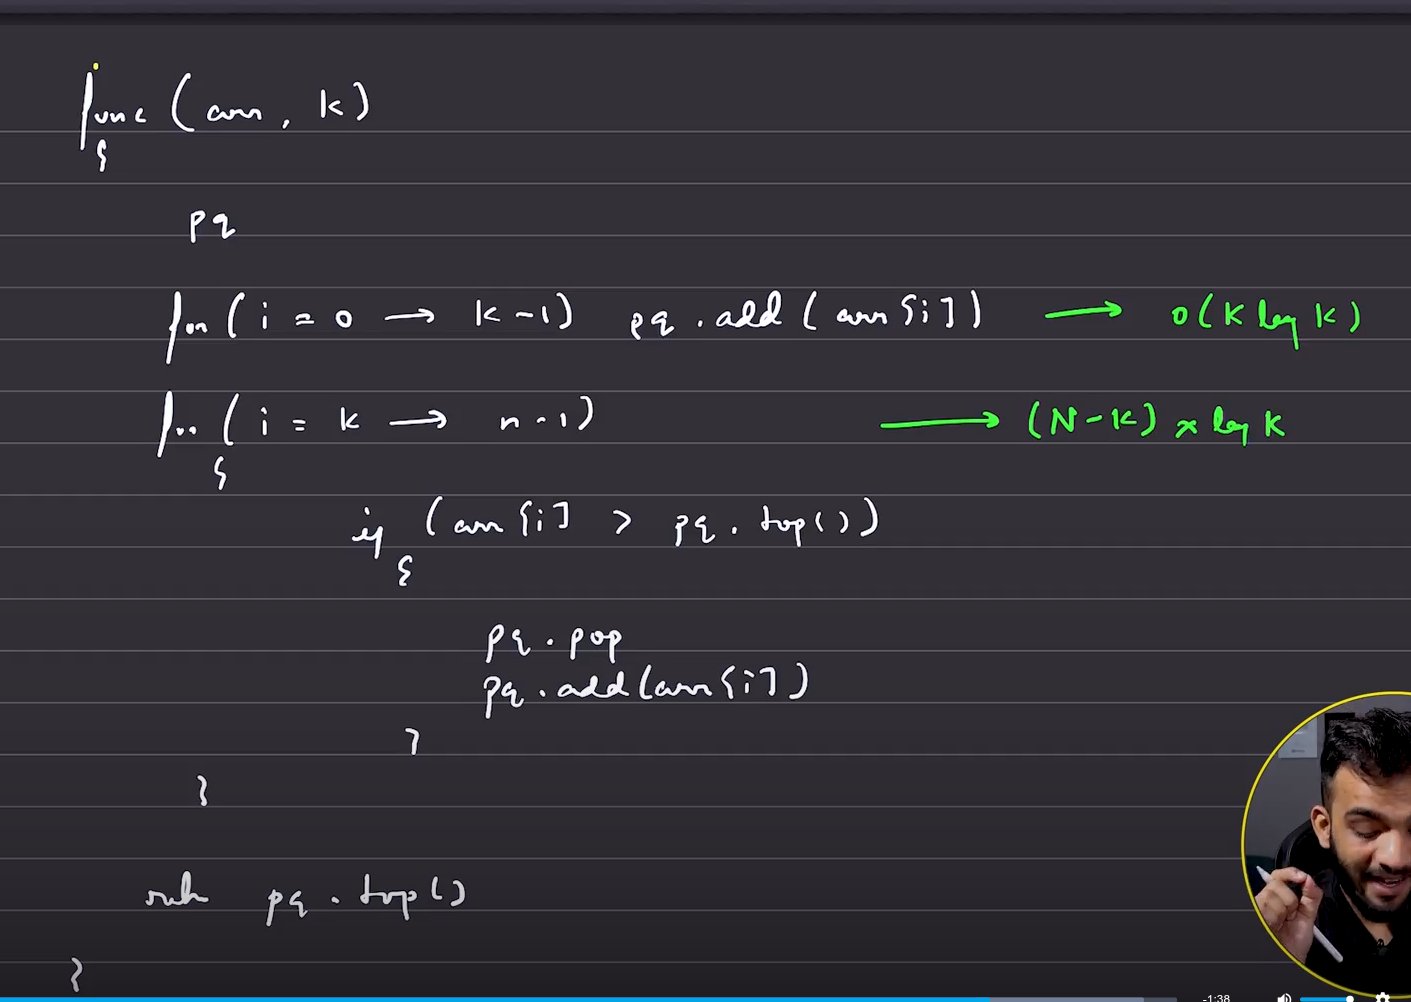 func (arr, k)
{
pq
for (i = 0 → k-1) pq.add(arr[i]) → O(K log K)
for (i = k → n-1) → (N-K) x log K
{
if (arr[i] > pq.top())
{
pq.pop
pq.add(arr[i])
}
}
return pq.top()
}
-1:38